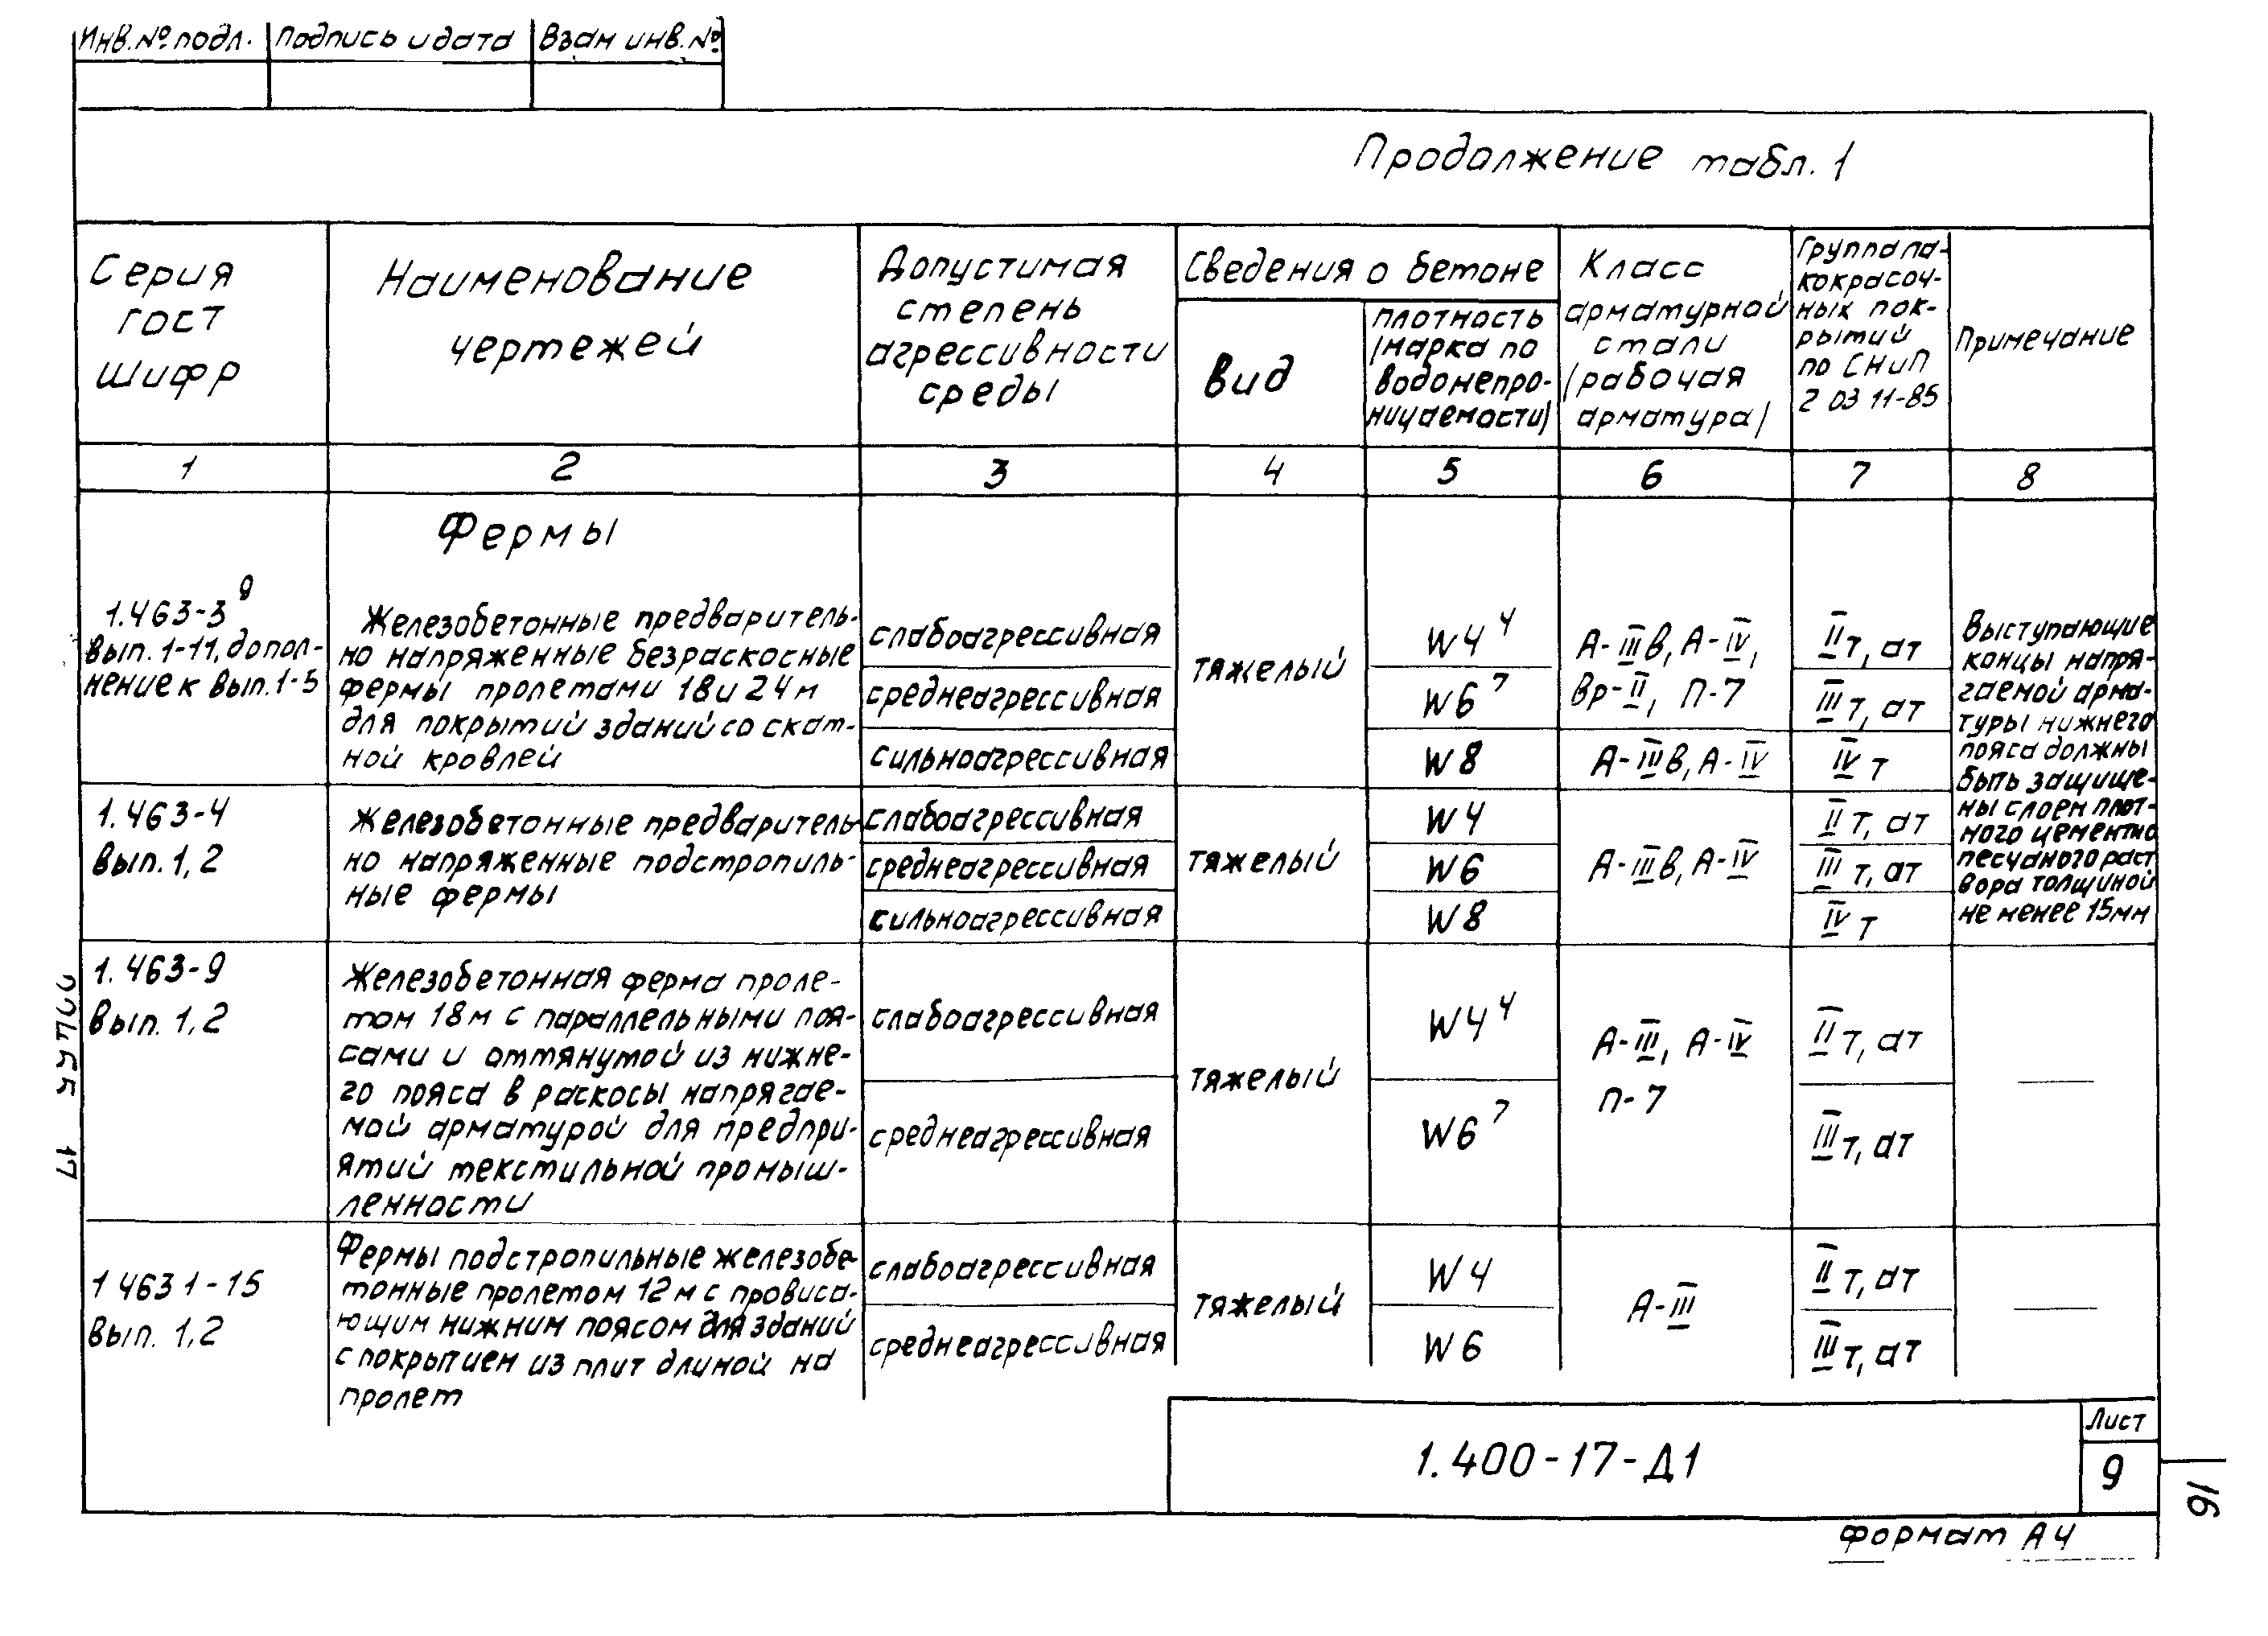 Инв. № подл. Подпись и дата Взам инв. №
Продолжение табл. 1
Серия
ГОСТ
Шифр
Наименование
чертежей
Допустимая
степень
агрессивности
среды
Сведения о бетоне
Вид
плотность
/марка по
водонепро-
ницаемости/
Класс
арматурной
стали
/рабочая
арматура/
Группа ла-
кокрасоч-
ных пок-
рытий
по СНиП
2 03 11-85
Примечание
1 2 3 4 5 6 7 8
Фермы
1.463-3 9
Вып. 1-11, допол-
нение к вып. 1-5
Железобетонные предваритель-
но напряженные безраскосные
фермы пролетами 18 и 24 м
для покрытий зданий со скат-
ной кровлей
слабоагрессивная
среднеагрессивная
сильноагрессивная
тяжелый
W4 4
W6 7
W8
А-IIIв, А-IV,
Вр-II, П-7
А-IIIв, А-IV
II т, ат
III т, ат
IV т
Выступающие
концы напря-
гаемой арма-
туры нижнего
пояса должны
быть защище-
ны слоем плот-
ного цементно
песчаного раст
вора толщиной
не менее 15мм
1.463-4
Вып. 1, 2
Железобетонные предваритель
но напряженные подстропиль-
ные фермы
слабоагрессивная
среднеагрессивная
сильноагрессивная
тяжелый
W4
W6
W8
А-IIIв, А-IV
II т, ат
III т, ат
IV т
1.463-9
Вып. 1, 2
Железобетонная ферма проле-
том 18м с параллельными поя-
сами и оттянутой из нижне-
го пояса в раскосы напрягае-
мой арматурой для предпри-
ятий текстильной промыш-
ленности
слабоагрессивная
среднеагрессивная
тяжелый
W4 4
W6 7
А-III, А-IV
П-7
II т, ат
III т, ат
—
1 463 1-15
Вып. 1, 2
Фермы подстропильные железобе-
тонные пролетом 12 м с провиса-
ющим нижним поясом для зданий
с покрытием из плит длиной на
пролет
слабоагрессивная
среднеагрессивная
тяжелый
W4
W6
А-III
II т, ат
III т, ат
—
1.400-17-Д1
Лист
9
16
Формат А4
17